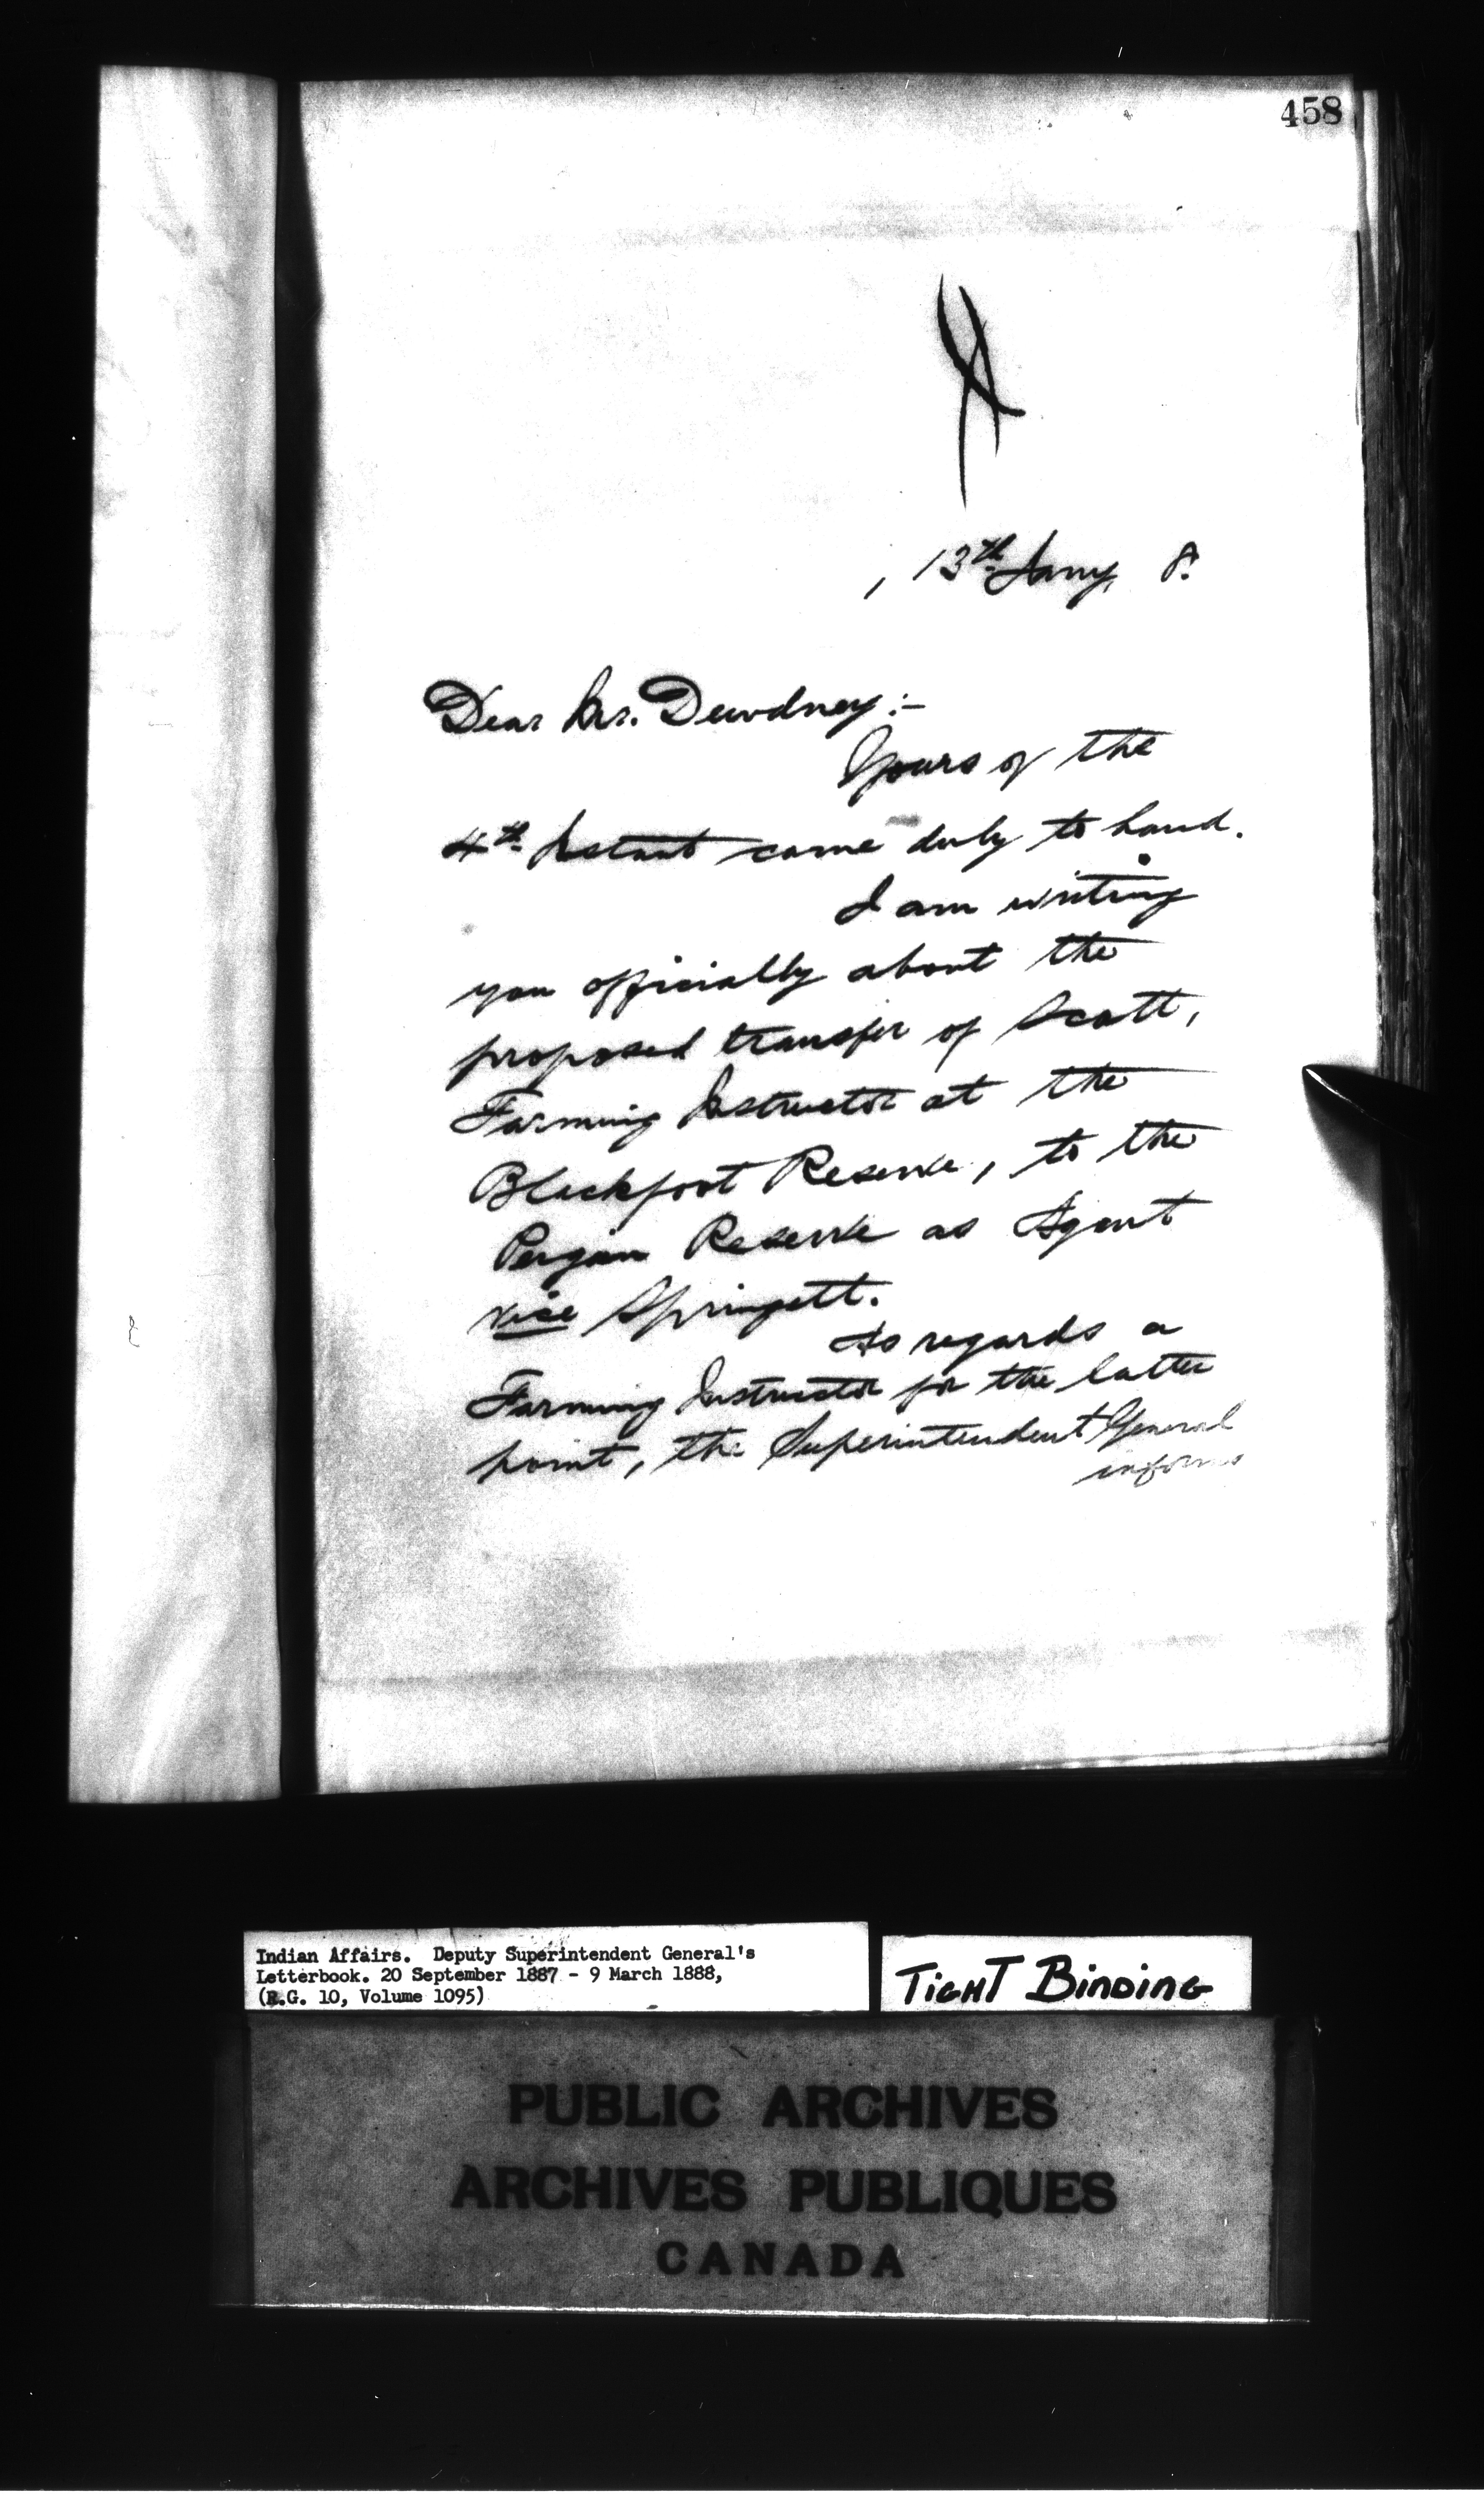 458
, 13th Jany, 8.
Dear Mr. Dewdney:-
Yours of the
4th Instant came duly to hand.
I am writing
you officially about the
proposed transfer of Scott,
Farming Instructor at the
Blackfoot Reserve, to the
Peigan Reserve as Agent
vice Springett.
As regards a
Farming Instructor for the latter
point, the Superintendent General
informs
Indian Affairs. Deputy Superintendent General's
Letterbook. 20 September 1887 - 9 March 1888,
(R.G. 10, Volume 1095)
TIGHT BINDING
PUBLIC ARCHIVES
ARCHIVES PUBLIQUES
CANADA